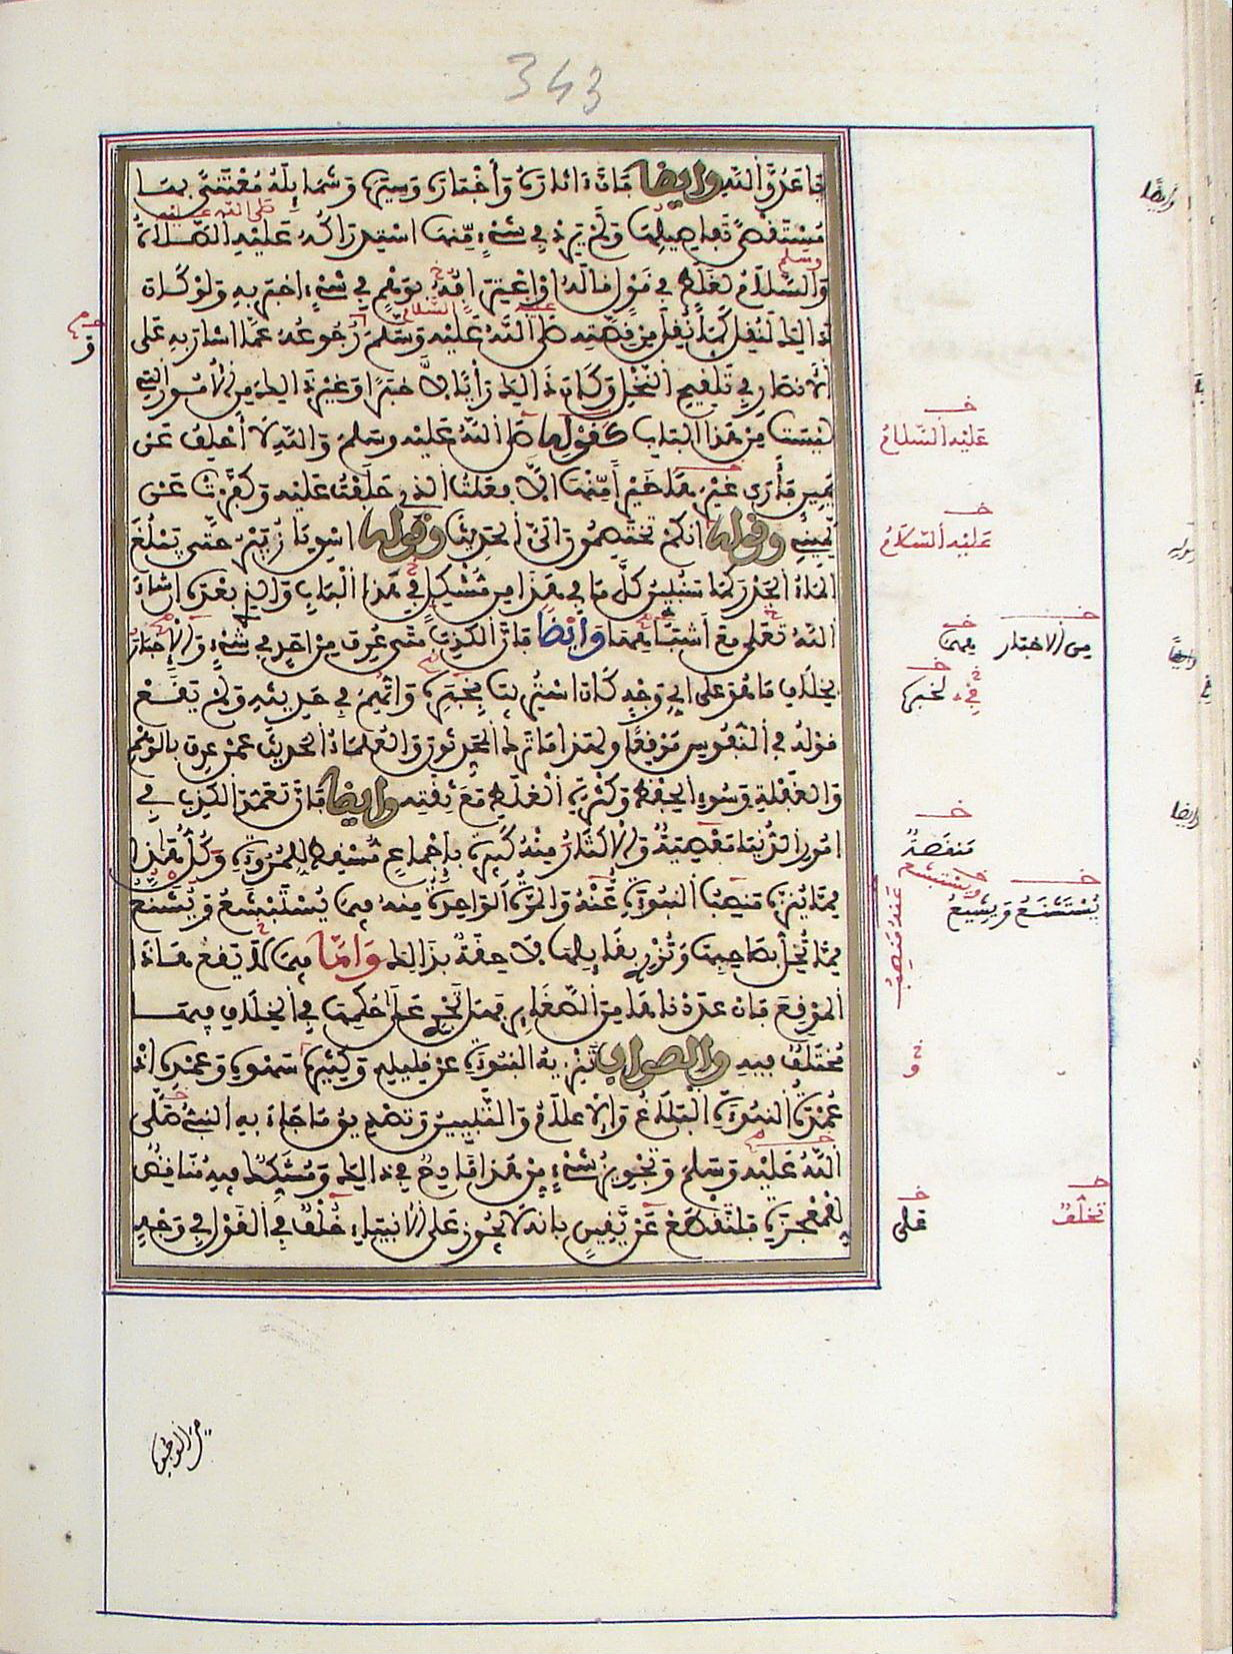 343
يا عدو الله وأيضا فإن آثاره وأخباره وسيره وشمايله معتنى بها
مستقصى تفاصيلها ولم يرد في شيء منها استدراكه عليه الصلاة
صلى الله عليه
والسلام لغلط في قول قاله أو اعترافه بوهم في شيء أخبر به ولو كان
وسلم
ذلك لنقل كما نقل من قصته صلى الله عليه وسلم رجوعه عما أشار به على
عليه السلام
الأنصار في تلقيح النخل وكان ذلك رأيا لا خبرا وغير ذلك من الأمور التي
ليست من هذا الباب كقوله صلى الله عليه وسلم والله لا أحلف على
يمين فأرى غيرها خيرا منها إلا فعلت الذي حلفت عليه وكفرت عن
يميني وقوله إنكم تختصمون إلي الحديث وقوله اسق يا زبير حتى يبلغ
الماء الجدر كما سنبين كل ما في هذا من مشكل في هذا الباب والذي بعده إن شاء
الله تعالى مع أشباههما وأيضا فإن الكذب متى عرف من أحد في شيء من الأخبار
بخلاف ما هو على أي وجه كان استريب بخبره واتهم في حديثه ولم يقع
قوله في النفوس موقعا ولهذا ما ترك المحدثون والعلماء الحديث عمن عرف بالوهم
والغفلة وسوء الحفظ وكثرة الغلط مع ثقته وأيضا فإن تعمد الكذب في
أمور الدنيا معصية والإكثار منه كبيرة بإجماع مسقط للمروءة وكل هذا
مما ينزه منصب النبوة عنه والمرة الواحدة منه فيما يستبشع ويشنع
مما يخل بصاحبها ويزري بقايلها لا حقة بذلك وأما فيما لا يقع هذا
الموقع فإن عددناها من الصغاير فهل تجري على حكمها في الخلاف فيها
مختلف فيه والصواب تنزيه النبوة عن قليله وكثيره سهوه وعمده إذ
عمدة النبوة البلاغ والإعلام والتبيين وتصديق ما جاء به النبي صلى
الله عليه وسلم وتجويز شيء من هذا قادح في ذلك ومشكك فيه مناقض
للمعجزة فلنقطع عن يقين بأنه لا يجوز على الأنبياء خلف في القول في وجه
و
عليه السلام
عليه السلام
من الأخبار
فيهما
في لخبره
منقصة
ويستبشع
يستشنع ويشيع
عنه منصب
و
تخلف
على
من الوجوه
وأيضا
وأيضا
وأيضا